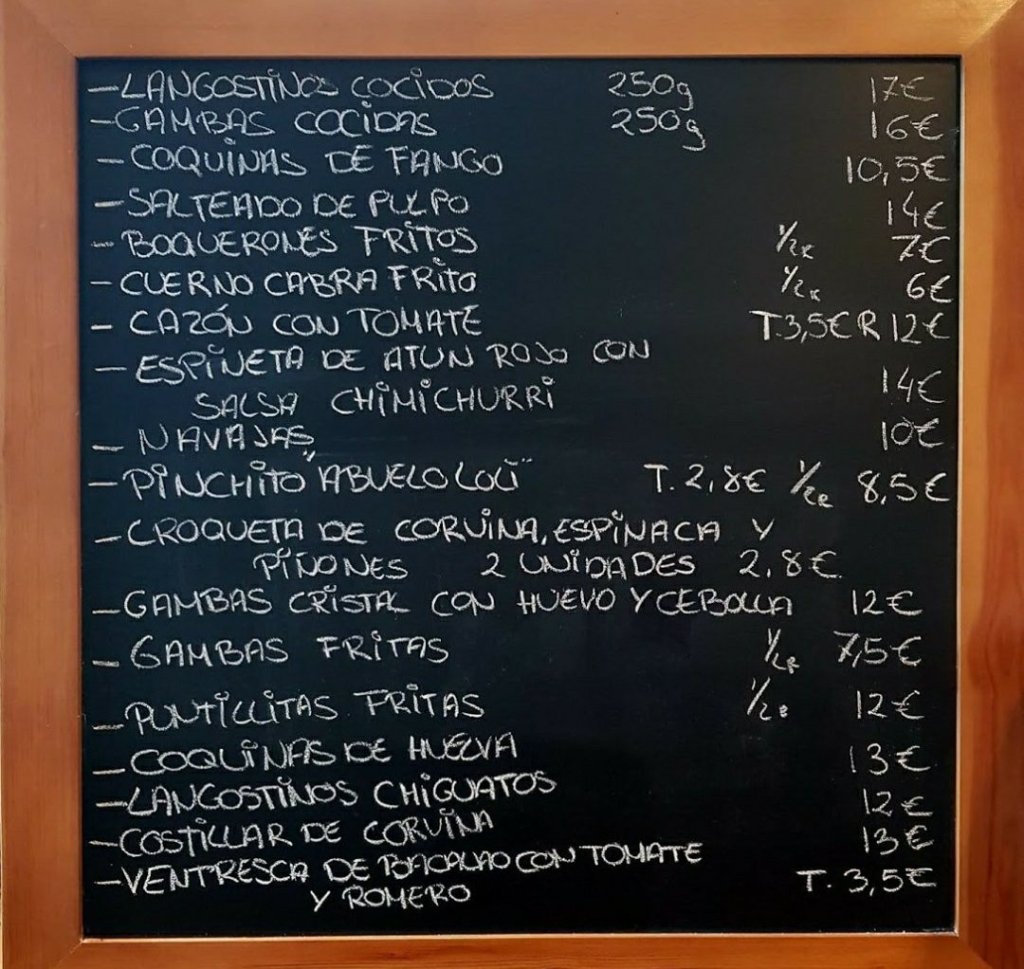 -LANGOSTINOS COCIDOS 250g 17€
-GAMBAS COCIDAS 250g 16€
-COQUINAS DE FANGO 10,5€
-SALTEADO DE PULPO 14€
-BOQUERONES FRITOS 1/2R 7€
-CUERNO CABRA FRITO 1/2R 6€
-CAZÓN CON TOMATE T.3,5€ R 12€
-ESPINETA DE ATUN ROJO CON
SALSA CHIMICHURRI 14€
-NAVAJAS 10€
-PINCHITO "ABUELO LOLI" T. 2,8€ 1/2R 8,5€
-CROQUETA DE CORVINA, ESPINACA Y
PIÑONES 2 UNIDADES 2,8€
-GAMBAS CRISTAL CON HUEVO Y CEBOLLA 12€
-GAMBAS FRITAS 1/2R 7,5€
-PUNTILLITAS FRITAS 1/2R 12€
-COQUINAS DE HUELVA 13€
-LANGOSTINOS CHIGUATOS 12€
-COSTILLAR DE CORVINA 13€
-VENTRESCA DE BACALAO CON TOMATE
Y ROMERO T. 3,5€